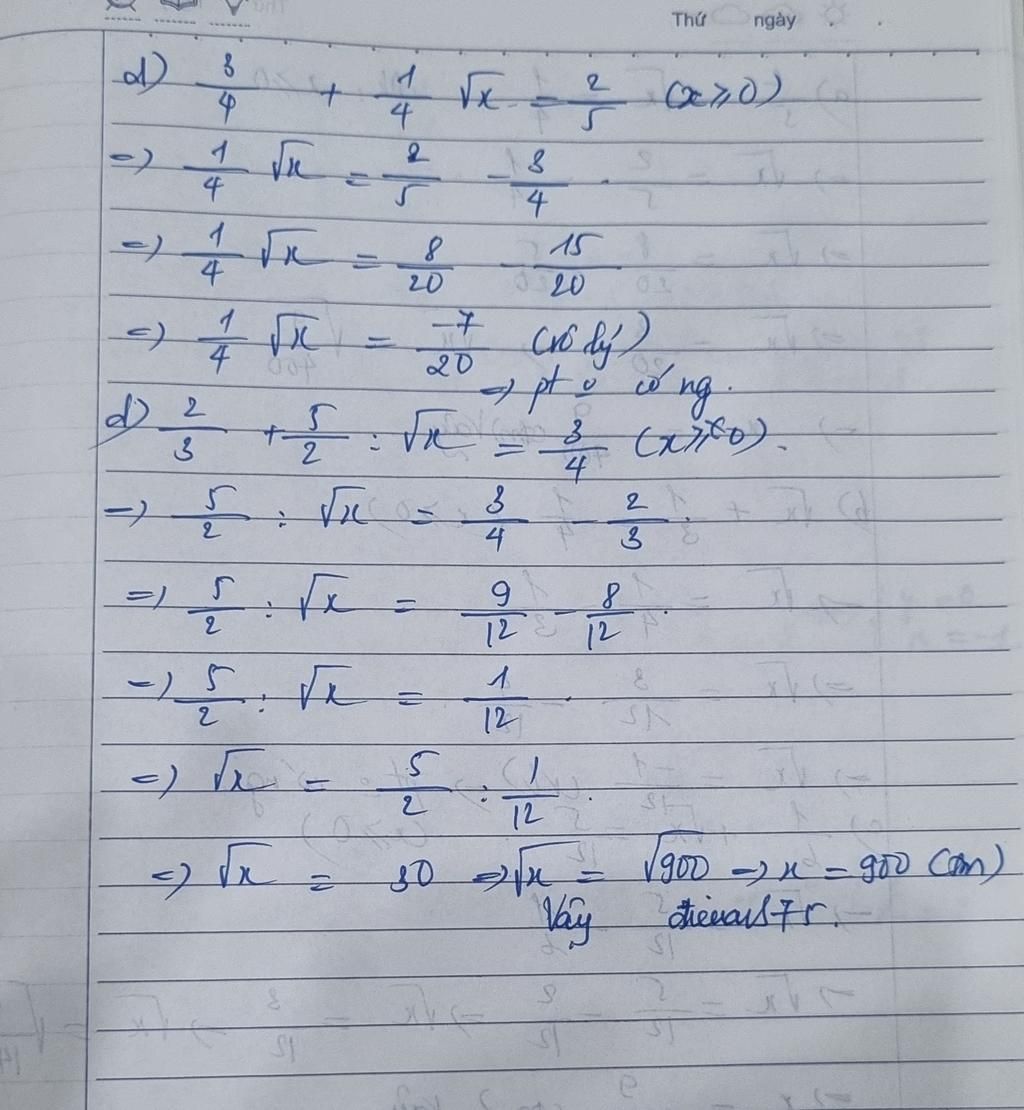 Thứ ngày
d) 3/4 + 1/4 √x = 2/5 (x ≥ 0)
=> 1/4 √x = 2/5 - 3/4.
=> 1/4 √x = 8/20 - 15/20
=> 1/4 √x = -7/20 (vô lý)
=> pt o có ng.
d) 2/3 + 5/2 : √x = 3/4 (x ≥ 0).
=> 5/2 : √x = 3/4 - 2/3
=> 5/2 : √x = 9/12 - 8/12.
=> 5/2 : √x = 1/12.
=> √x = 5/2 : 1/12.
=> √x = 30 => √x = √900 => x = 900 (tm)
Vậy